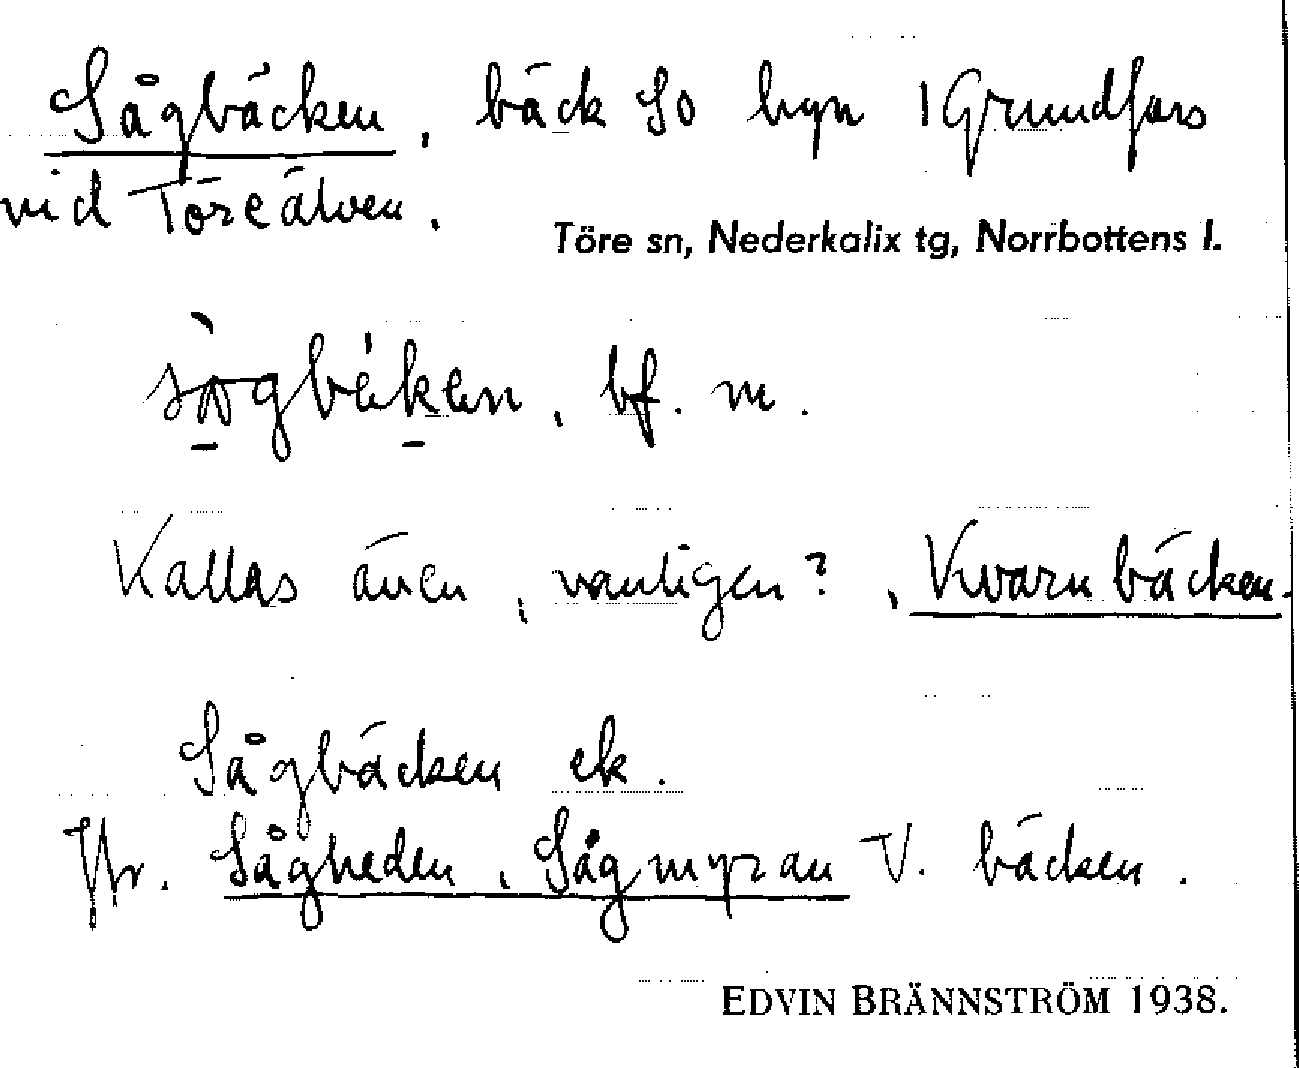 Sågbäcken, bäck So byn i Grundfors
vid Töreälven.
Töre sn, Nederkalix tg, Norrbottens l.
bf. m.
Kallas även, vanligen?, Kvarnbäcken.
Sågbäcken ek.
Jfr. Sågheden, Sågmyran V. bäcken.
EDVIN BRÄNNSTRÖM 1938.